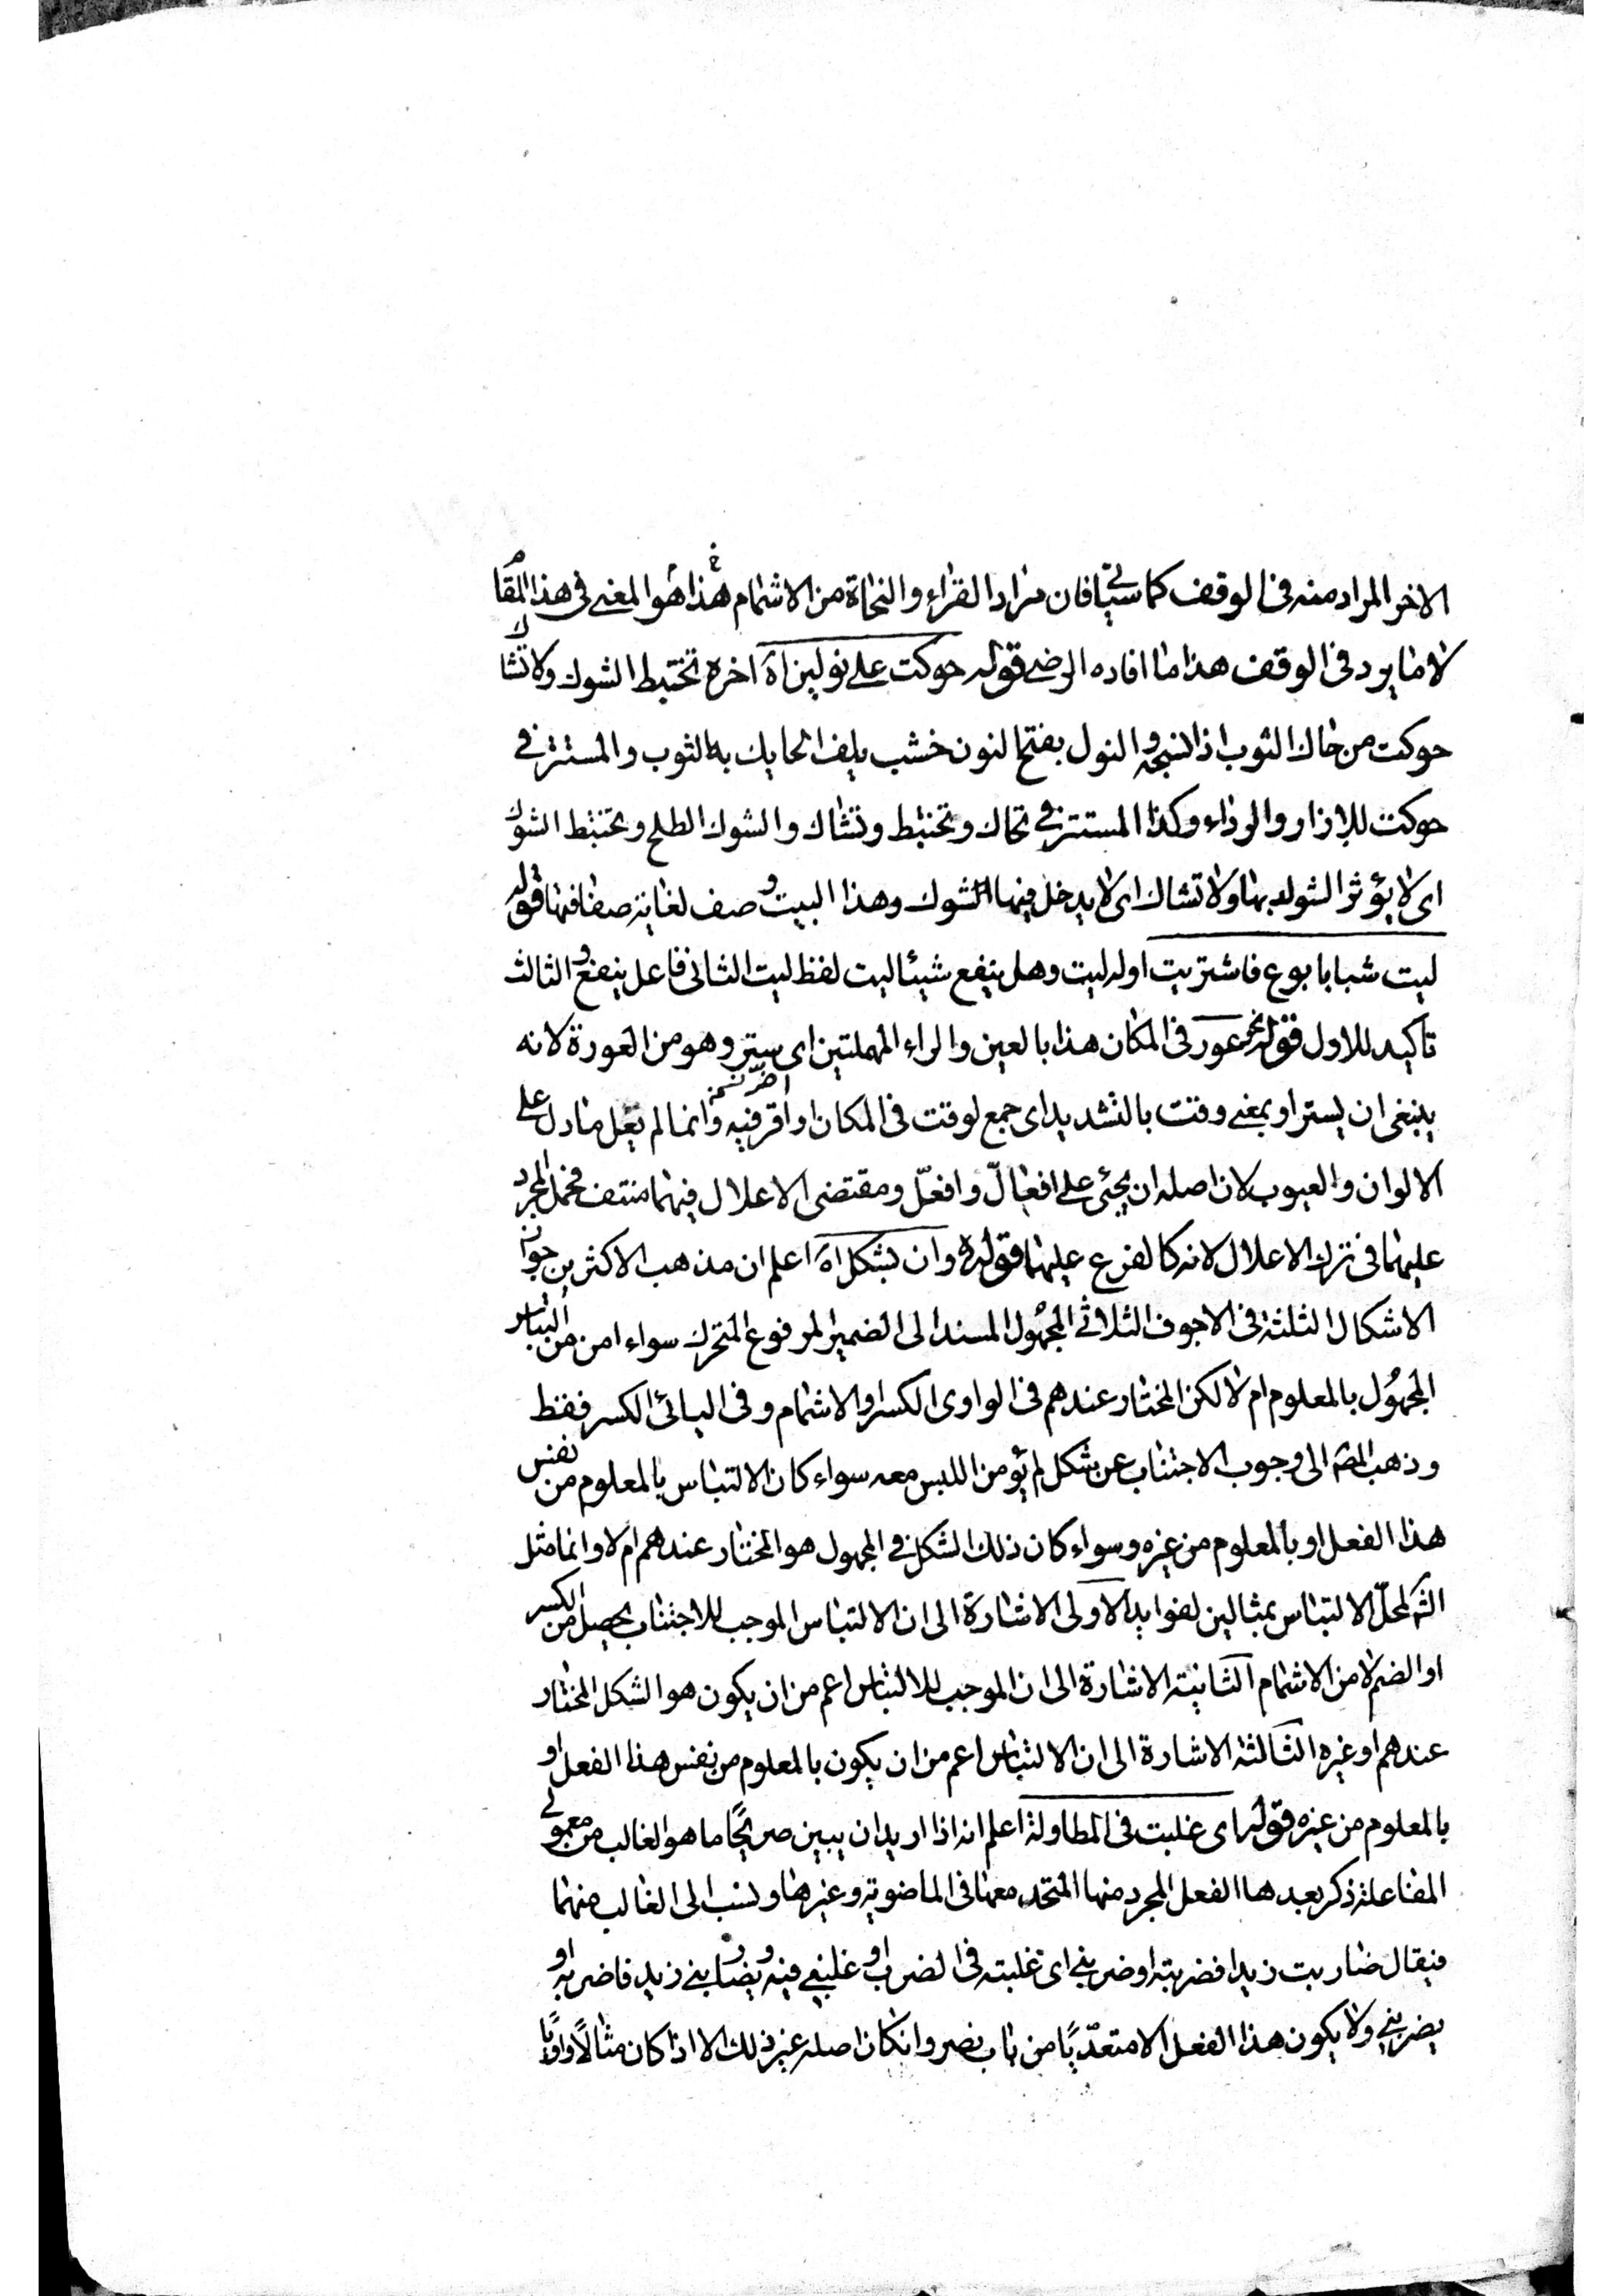 الاخر المراد منه فى الوقف كما سيأتى فان مراد القراء والنحاة من الاشمام هذا هو المعنى فى هذا المقام
لا ما يرد فى الوقف هذا ما افاده الرضى قوله حوكت على نولين اه اخره تختبط الشوك ولا تشاك
حوكت من حاك الثوب اذا نسجه والنول بفتح النون خشب يلف الحايك به الثوب والمستتر فى
حوكت للازار والرداء وكذا المستتر فى تحاك وتختبط وتشاك والشوك الطلح وتختبط الشوك
اى لا يؤثر الشوك بها ولا تشاك اى لا يدخل فيها الشوك وهذا البيت وصف لغاية صفاقتها قوله
ليت شبابا بوع فاشتريت اوله ليت وهل ينفع شيئا ليت لفظ ليت الثانى فاعل ينفع والثالث
تاكيد للاول قوله نحو عور فى المكان هذا بالعين والراء المهملتين اى ستر وهو من العورة لانه
ينبغى ان يستر او بمعنى وقتت بالتشديد اى جمع لوقت فى المكان او اقر فيه وانما لم يعل ما دل على
الالوان والعيوب لان اصله ان يجئ على افعالّ وافعلّ ومقتضى الاعلال فيهما منتف فحمل المجرد
عليهما فى ترك الاعلال لانه كالفرع عليهما قوله وان بشكل اه اعلم ان مذهب الاكثرين جواز
الاشكال الثلثة فى الاجوف الثلاثى المجهول المسند الى الضمير المرفوع المتحرك سواء امن من التباس
المجهول بالمعلوم ام لا لكن المختار عندهم فى الواوى الكسر او الاشمام وفى اليائى الكسر فقط
وذهب المصه الى وجوب الاجتناب عن شكل لم يؤمن اللبس معه سواء كان الالتباس بالمعلوم من نفس
هذا الفعل او بالمعلوم من غيره وسواء كان ذلك الشكل فى المجهول هو المختار عندهم ام لا وانما مثل
الشه لمحلّ الالتباس بمثالين لفوايد الاولى الاشارة الى ان الالتباس الموجب للاجتناب يحصل من الكسر
او الضم لا من الاشمام الثانية الاشارة الى ان الموجب للالتباس اعم من ان يكون هو الشكل المختار
عندهم او غيره الثالثة الاشارة الى ان الالتباس اعم من ان يكون بالمعلوم من نفس هذا الفعل او
بالمعلوم من غيره قوله اى غلبت فى المطاولة اعلم انه اذا اريد ان يبين صريحًا ما هو الغالب من معمولى
المفاعلة ذكر بعدها الفعل المجرد منها المتحد معها فى الماضوية وغيرها ونسب الى الغالب منهما
فيقال ضاربت زيدا فضربته او ضربنى اى غلبته فى الضرب او غلبنى فيه ويضاربنى زيد فاضربه او
يضربنى ولا يكون هذا الفعل الا متعدّيًا من باب نصر وان كان اصله غير ذلك الا اذا كان مثالًا واويًا